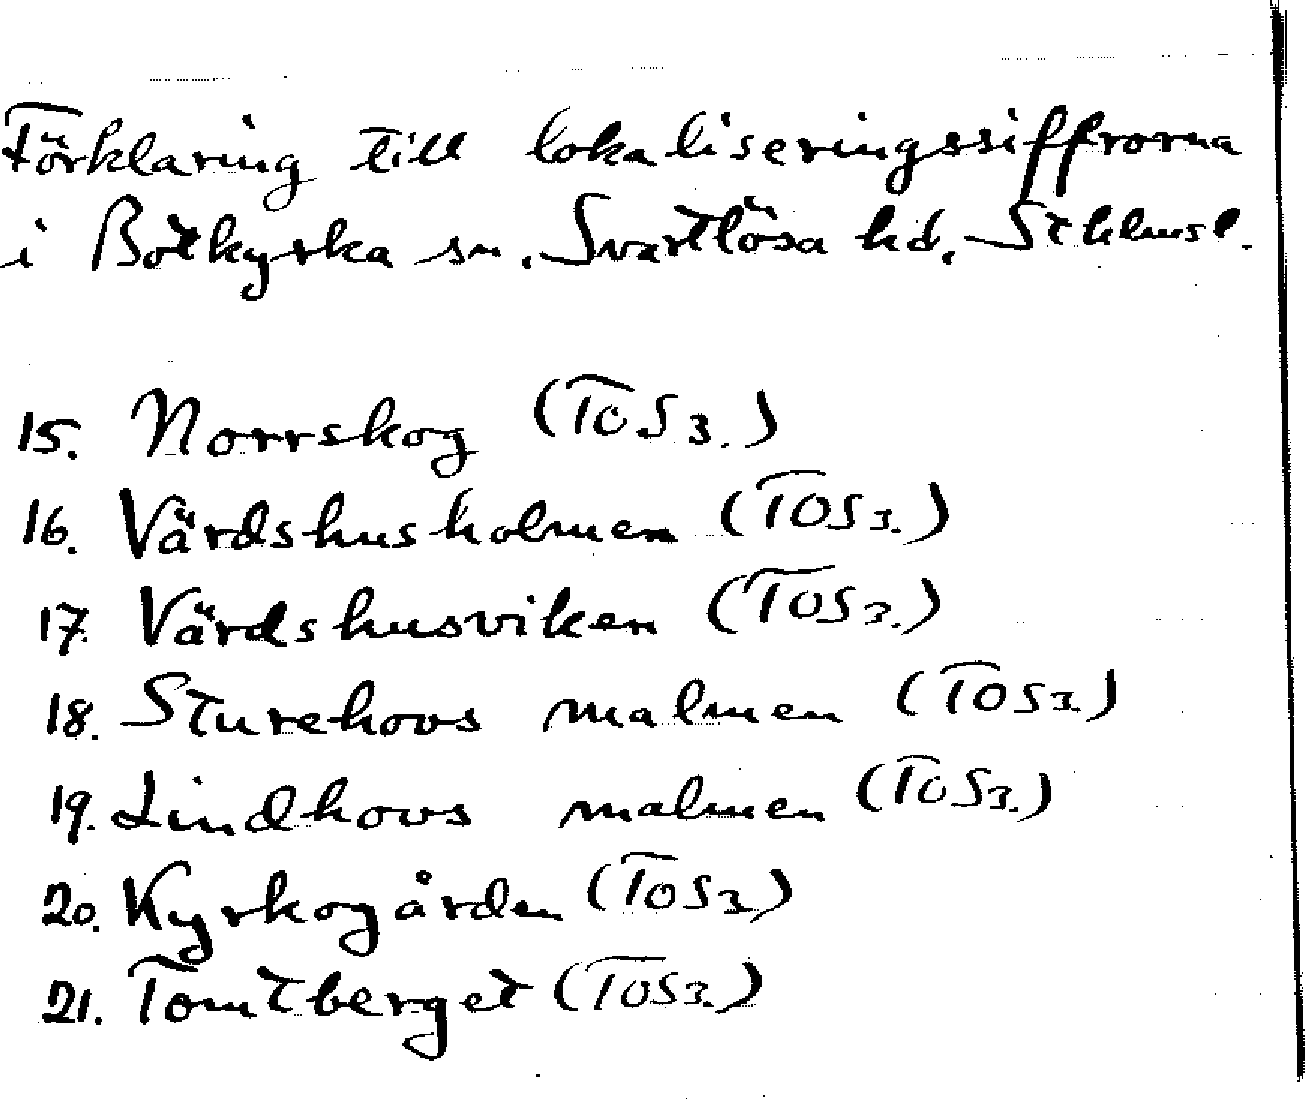 Förklaring till lokaliseringssiffrorna
i Botkyrka sn. Svartlösa hd. Sthlms l.
15. Norrskog (TOS3.)
16. Värdshusholmen (TOS3.)
17. Värdshusviken (TOS3.)
18. Sturehovs malmen (TOS3)
19. Lindhovs malmen (TOS3.)
20. Kyrkogården (TOS3)
21. Tomtberget (TOS3.)